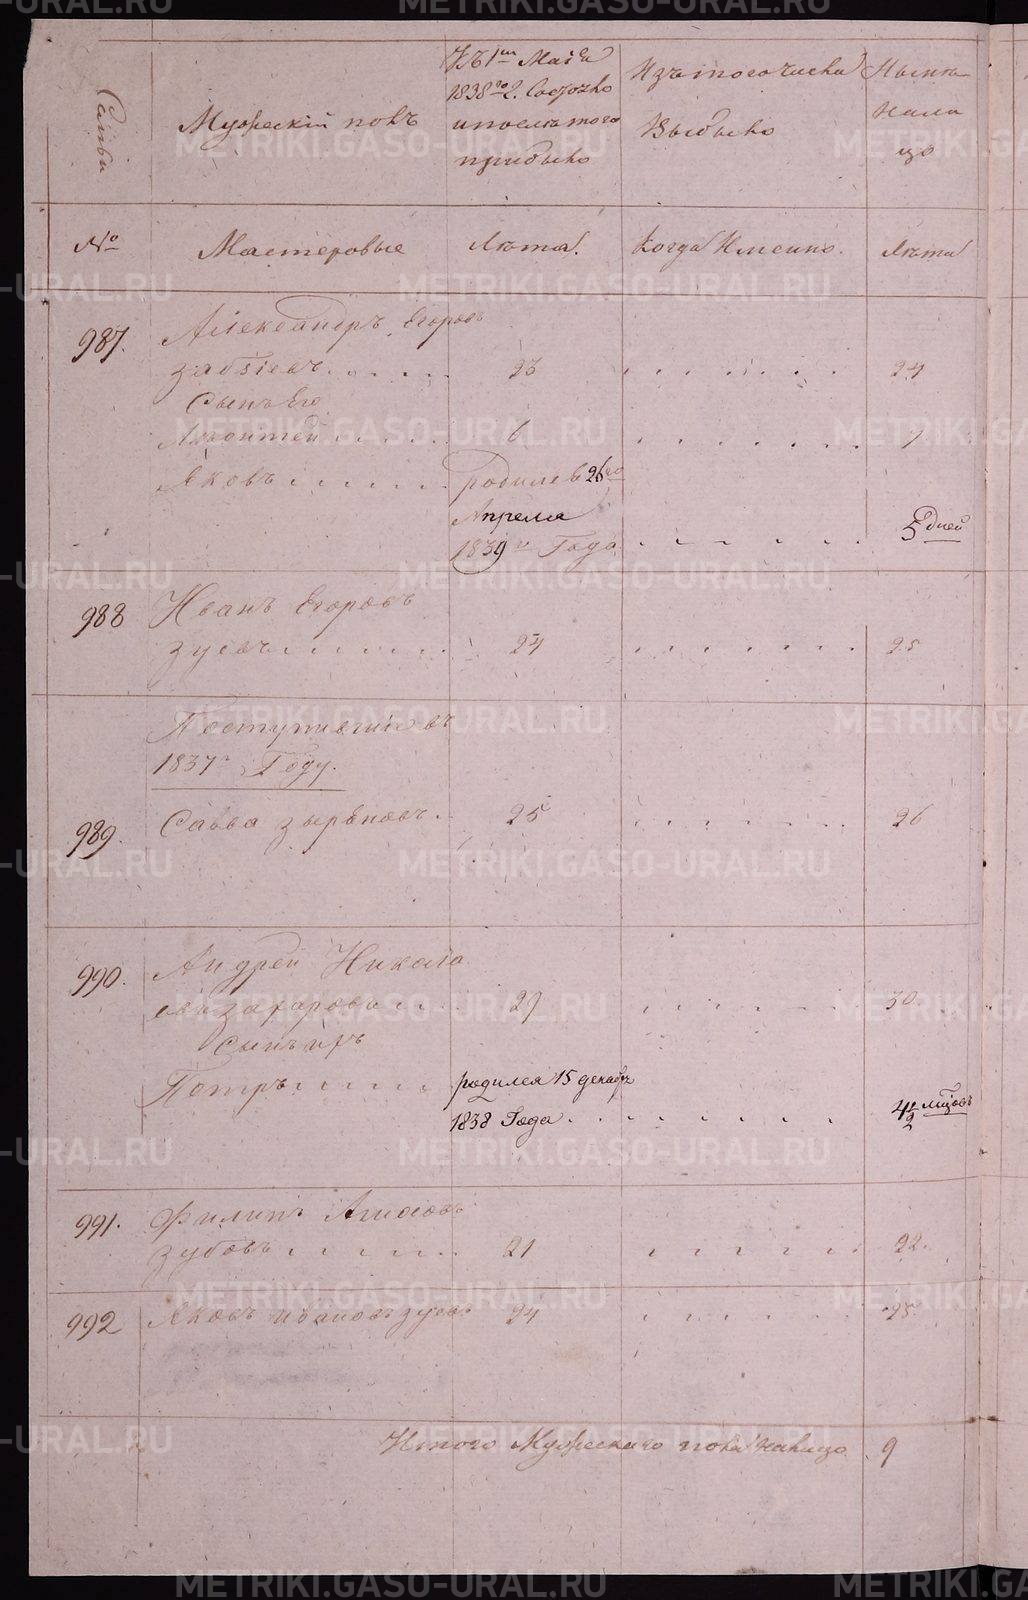 Мужескiй полъ
Къ 1му Маiя
1838го г. Состояло
и после того
прибыло
Изъ того числа
Выбыло
Ныне
нали
цо
№
Мастеровые
Лета.
Когда Именно.
Лета
987. Александръ Егоровъ
23 24
Сынъ Его
6 7
Яковъ родился 26го
Апреля
1839го Года 5 дней
988 Иванъ Егоровъ
Зуевъ 24 25
Поступившiе въ
1837м Году.
989. Савва Зыряновъ 25 26
990. Андрей Никола
евъ Захаровъ 29 30
Сынъ ихъ
Петръ родился 15 декабр
1838 Года 4 1/2 мцовъ
991. Филипъ
Зубовъ 21 22.
992 Яковъ Ивановъ Зуевъ 24 25
Итого Мужескаго пола налицо 9
METRIKI.GASO-URAL.RU